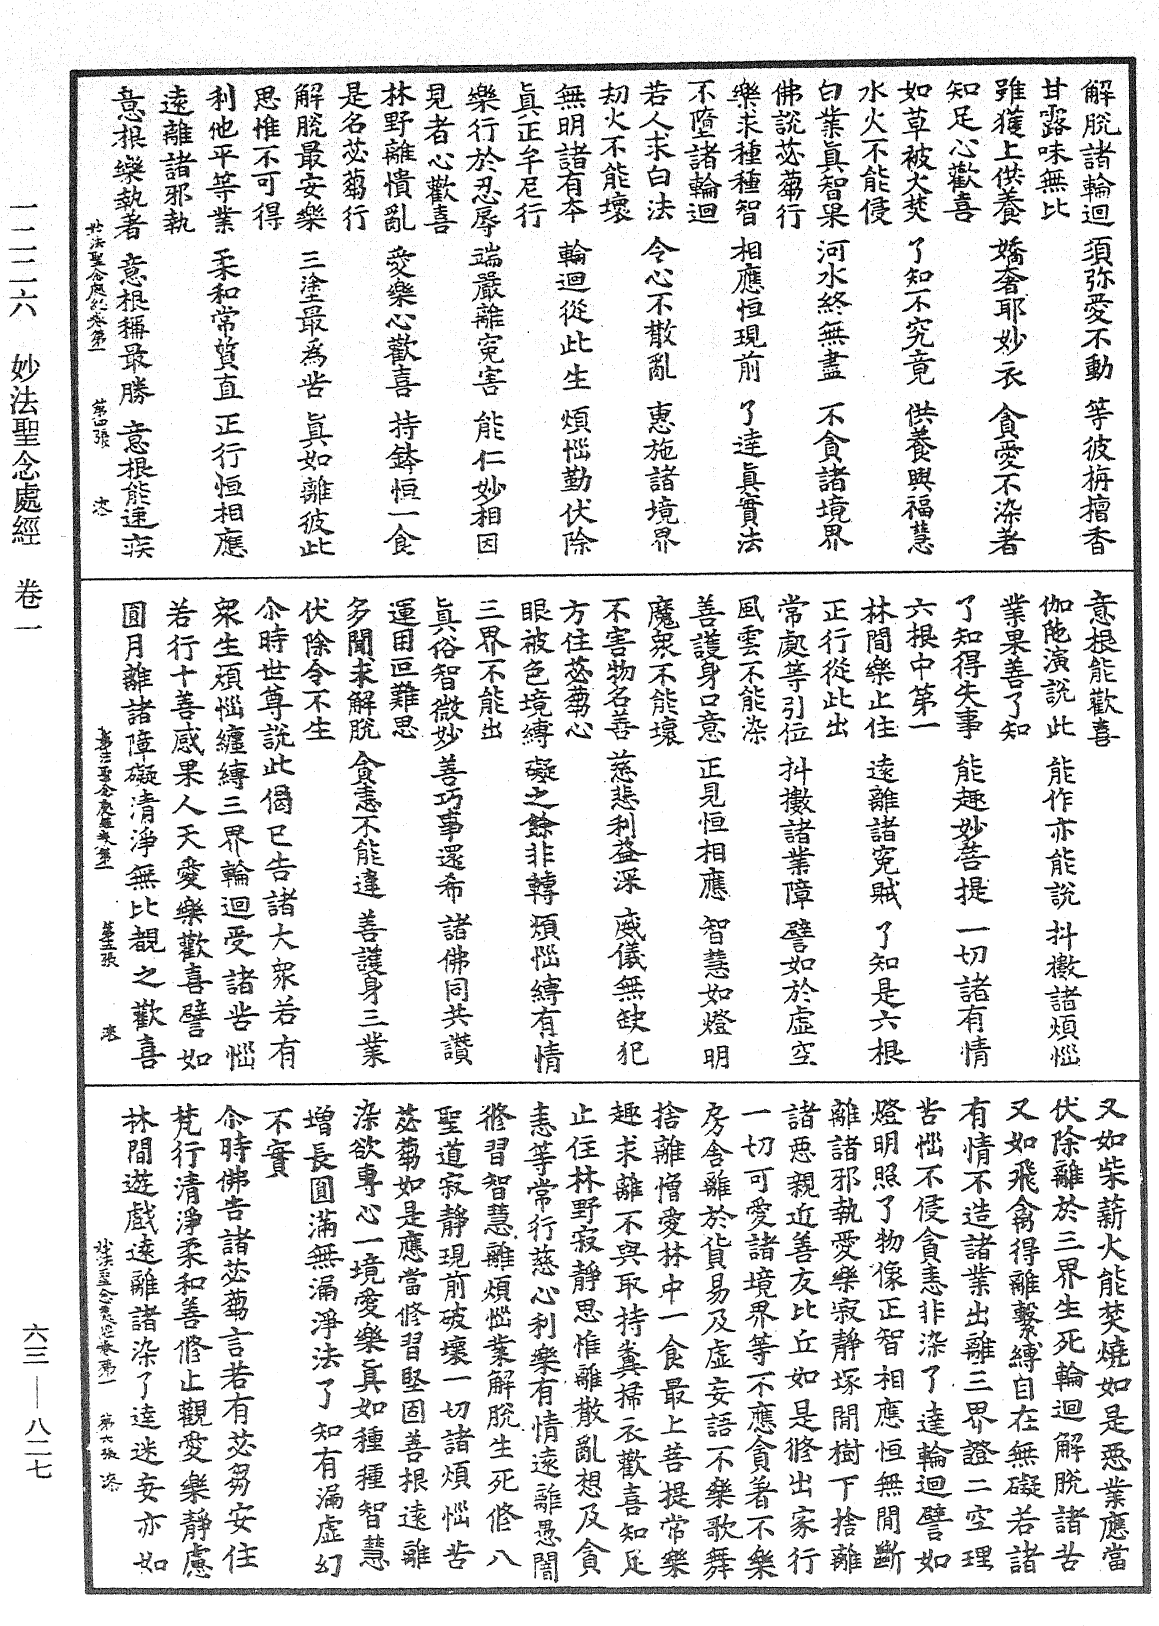 解脫諸輪迴　須弥愛不動　等彼栴檀香
甘露味無比
雖獲上供養　嬌奢耶妙衣　貪愛不染著
知足心歡喜
如草被火焚　了知不究竟　供養興福慧
水火不能侵
白業真智果　河水終無盡　不貪諸境界
佛說苾蒭行
樂求種種智　相應恒現前　了達真實法
不墮諸輪迴
若人求白法　令心不散亂　惠施諸境界
刧火不能壞
無明諸有夲　輪迴從此生　煩惱勤伏除
真正牟尼行
樂行於忍辱　端嚴離寃害　能仁妙相因
見者心歡喜
林野離憒亂　愛樂心歡喜　持鉢恒一食
是名苾蒭行
解脫最安樂　三塗最為苦　真如離彼此
思惟不可得
利他平等業　柔和常質直　正行恒相應
遠離諸邪執
意根樂執著　意根稱最勝　意根能速疾
妙法聖念處經卷第一　第四張
意根能歡喜
伽陁演說此　能作亦能說　抖擻諸煩惱
業果善了知
了知得失事　能趣妙菩提　一切諸有情
六根中第一
林間樂止住　遠離諸寃賊　了知是六根
正行從此出
常處等引位　抖擻諸業障　譬如於虛空
風雲不能染
善護身口意　正見恒相應　智慧如燈明
魔衆不能壞
不害物名善　慈悲利益深　威儀無缺犯
方住苾蒭心
眼被色境縛　礙之餘非轉　煩惱縛有情
三界不能出
真俗智微妙　善巧事還希　諸佛同共讚
運用叵難思
多聞求解脫　貪恚不能違　善護身三業
伏除令不生
尒時世尊說此偈已告諸大衆若有
衆生煩惱纏縛三界輪迴受諸苦惱
若行十善感果人天愛樂歡喜譬如
圓月離諸障礙清淨無比覩之歡喜
妙法聖念處經卷第一　第五張
又如柴薪火能焚燒如是惡業應當
伏除離於三界生死輪迴解脫諸苦
又如飛禽得離繫縛自在無礙若諸
有情不造諸業出離三界證二空理
苦惱不侵貪恚非染了達輪迴譬如
燈明照了物像正智相應恒無間斷
離諸邪執愛樂寂靜塚間樹下捨離
諸惡親近善友比丘如是修出家行
一切可愛諸境界等不應貪著不樂
房舍離於貨易及虛妄語不樂歌舞
捨離憎愛林中一食最上菩提常樂
趣求離不與取持糞掃衣歡喜知足
止住林野寂靜思惟離散亂想及貪
恚等常行慈心利樂有情遠離愚闇
修習智慧離煩惱業解脫生死修八
聖道寂靜現前破壞一切諸煩惱苦
苾蒭如是應當修習堅固善根遠離
染欲專心一境愛樂真如種種智慧
增長圓滿無漏淨法了知有漏虛幻
不實
尒時佛告諸苾蒭言若有苾芻安住
梵行清淨柔和善修止觀愛樂靜慮
林間遊戲遠離諸染了達迷妄亦如
妙法聖念處經卷第一　第六張
一二二六　妙法聖念處經　卷一
六三—八二七